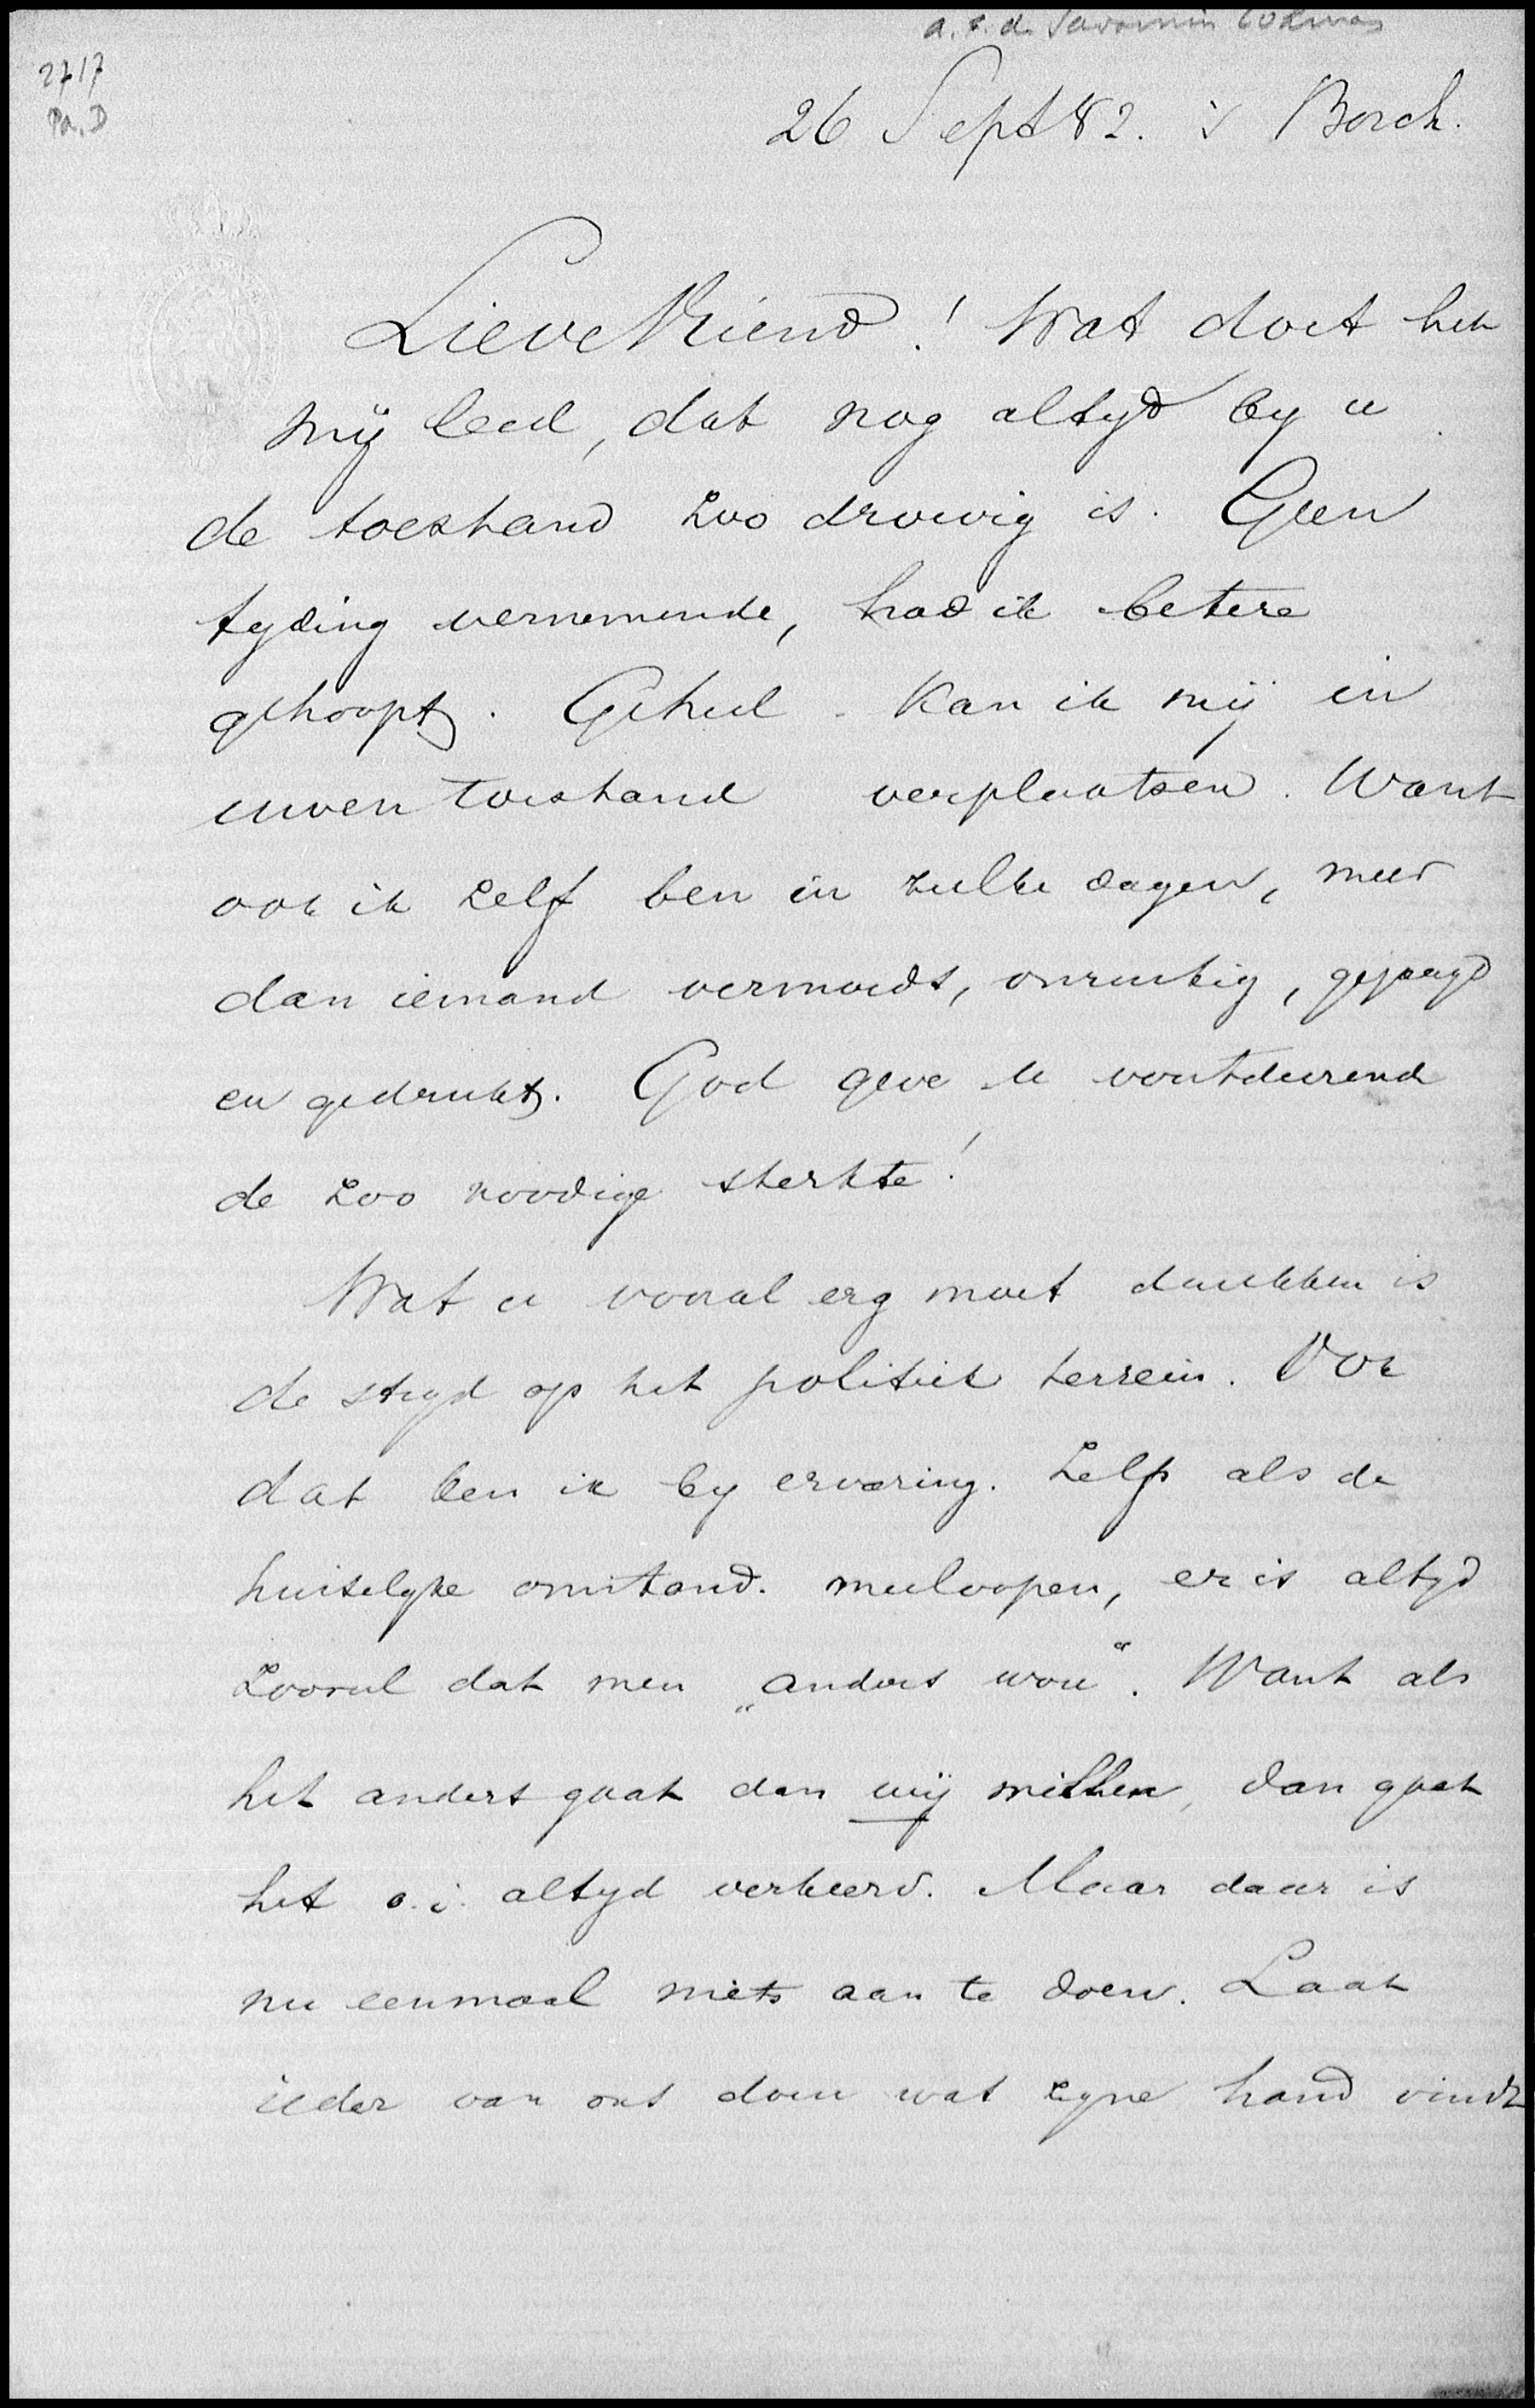 a. F. de Savornin Lohman
2717
Pa. D
26 Sept 82. 's Bosch.
Lieve Vriend! Wat doet het
mij leed, dat nog altyd by u
de toestand zoo droevig is. Geen
tyding vernemende, had ik betere
gehoopt. Geheel kan ik mij in
uwen toestand verplaatsen. Want
ook ik zelf ben in zulke dagen, meer
dan iemand vermoedt, onrustig, gejaagd
en gedrukt. God geve u voortdurend
de zoo noodige sterkte!
Wat u vooral erg moet drukken is
de stryd op het politiek terrein. Ook
dat ken ik by ervaring. Zelfs als de
huiselyke omstand. meeloopen, er is altyd
zooveel dat men „anders wou“. Want als
het anders gaat dan wij willen, dan gaat
het o.i. altyd verkeerd. Maar daar is
nu eenmaal niets aan te doen. Laat
ieder van ons doen wat zyne hand vindt